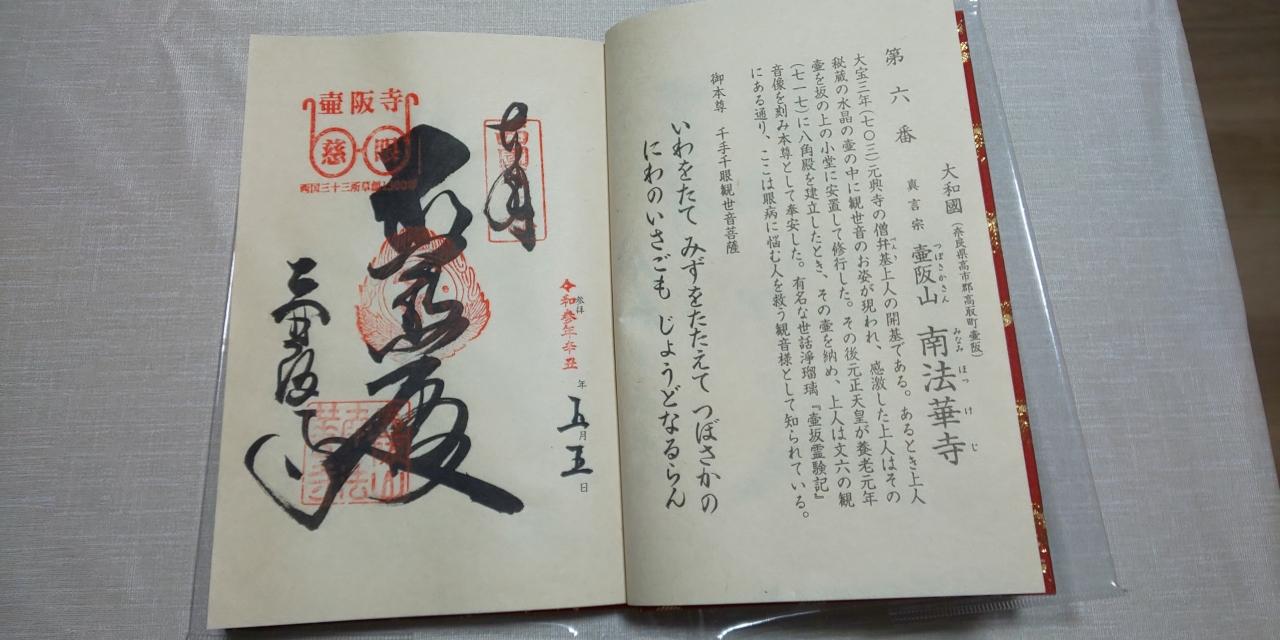 第六番
大和國(奈良県高市郡高取町壷阪)
真言宗 壷阪山 南法華寺
つぼさかさん みなみ ほっ け じ
大宝三年(七〇三)元興寺の僧弁基上人の開基である。あるとき上人
べん
秘蔵の水晶の壷の中に観世音のお姿が現われ、感激した上人はその
壷を坂の上の小堂に安置して修行した。その後元正天皇が養老元年
(七一七)に八角殿を建立したとき、その壷を納め、上人は丈六の観
音像を刻み本尊として奉安した。有名な世話淨瑠璃『壷坂霊験記』
にある通り、ここは眼病に悩む人を救う観音様として知られている。
御本尊 千手千眼観世音菩薩
いわをたて みずをたたえて つぼさかの
にわのいさごも じようどなるらん
奉拝
参拝
令和参年辛丑年五月五日
壷阪寺
慈眼
西国三十三所草創1300年
壷阪寺